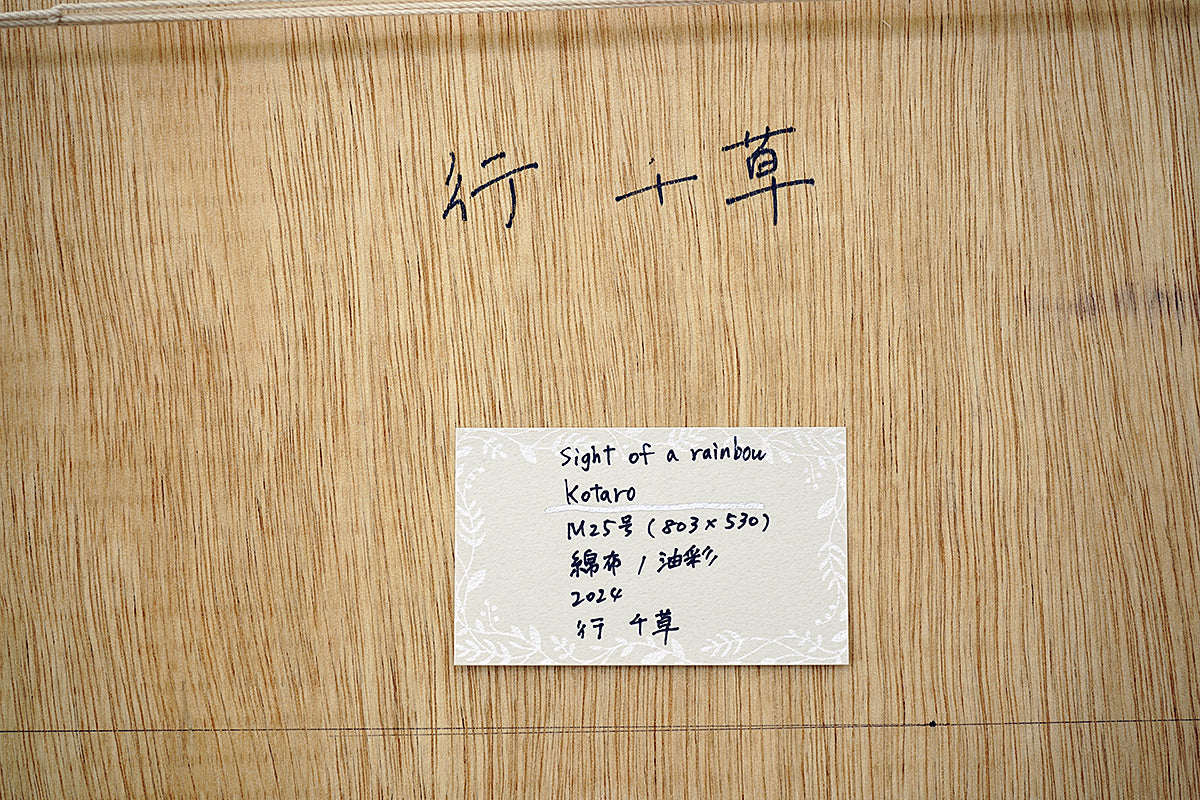 行 千草
Sight of a rainbow
Kotaro
M25号 (803×530)
綿布 / 油彩
2024
行 千草